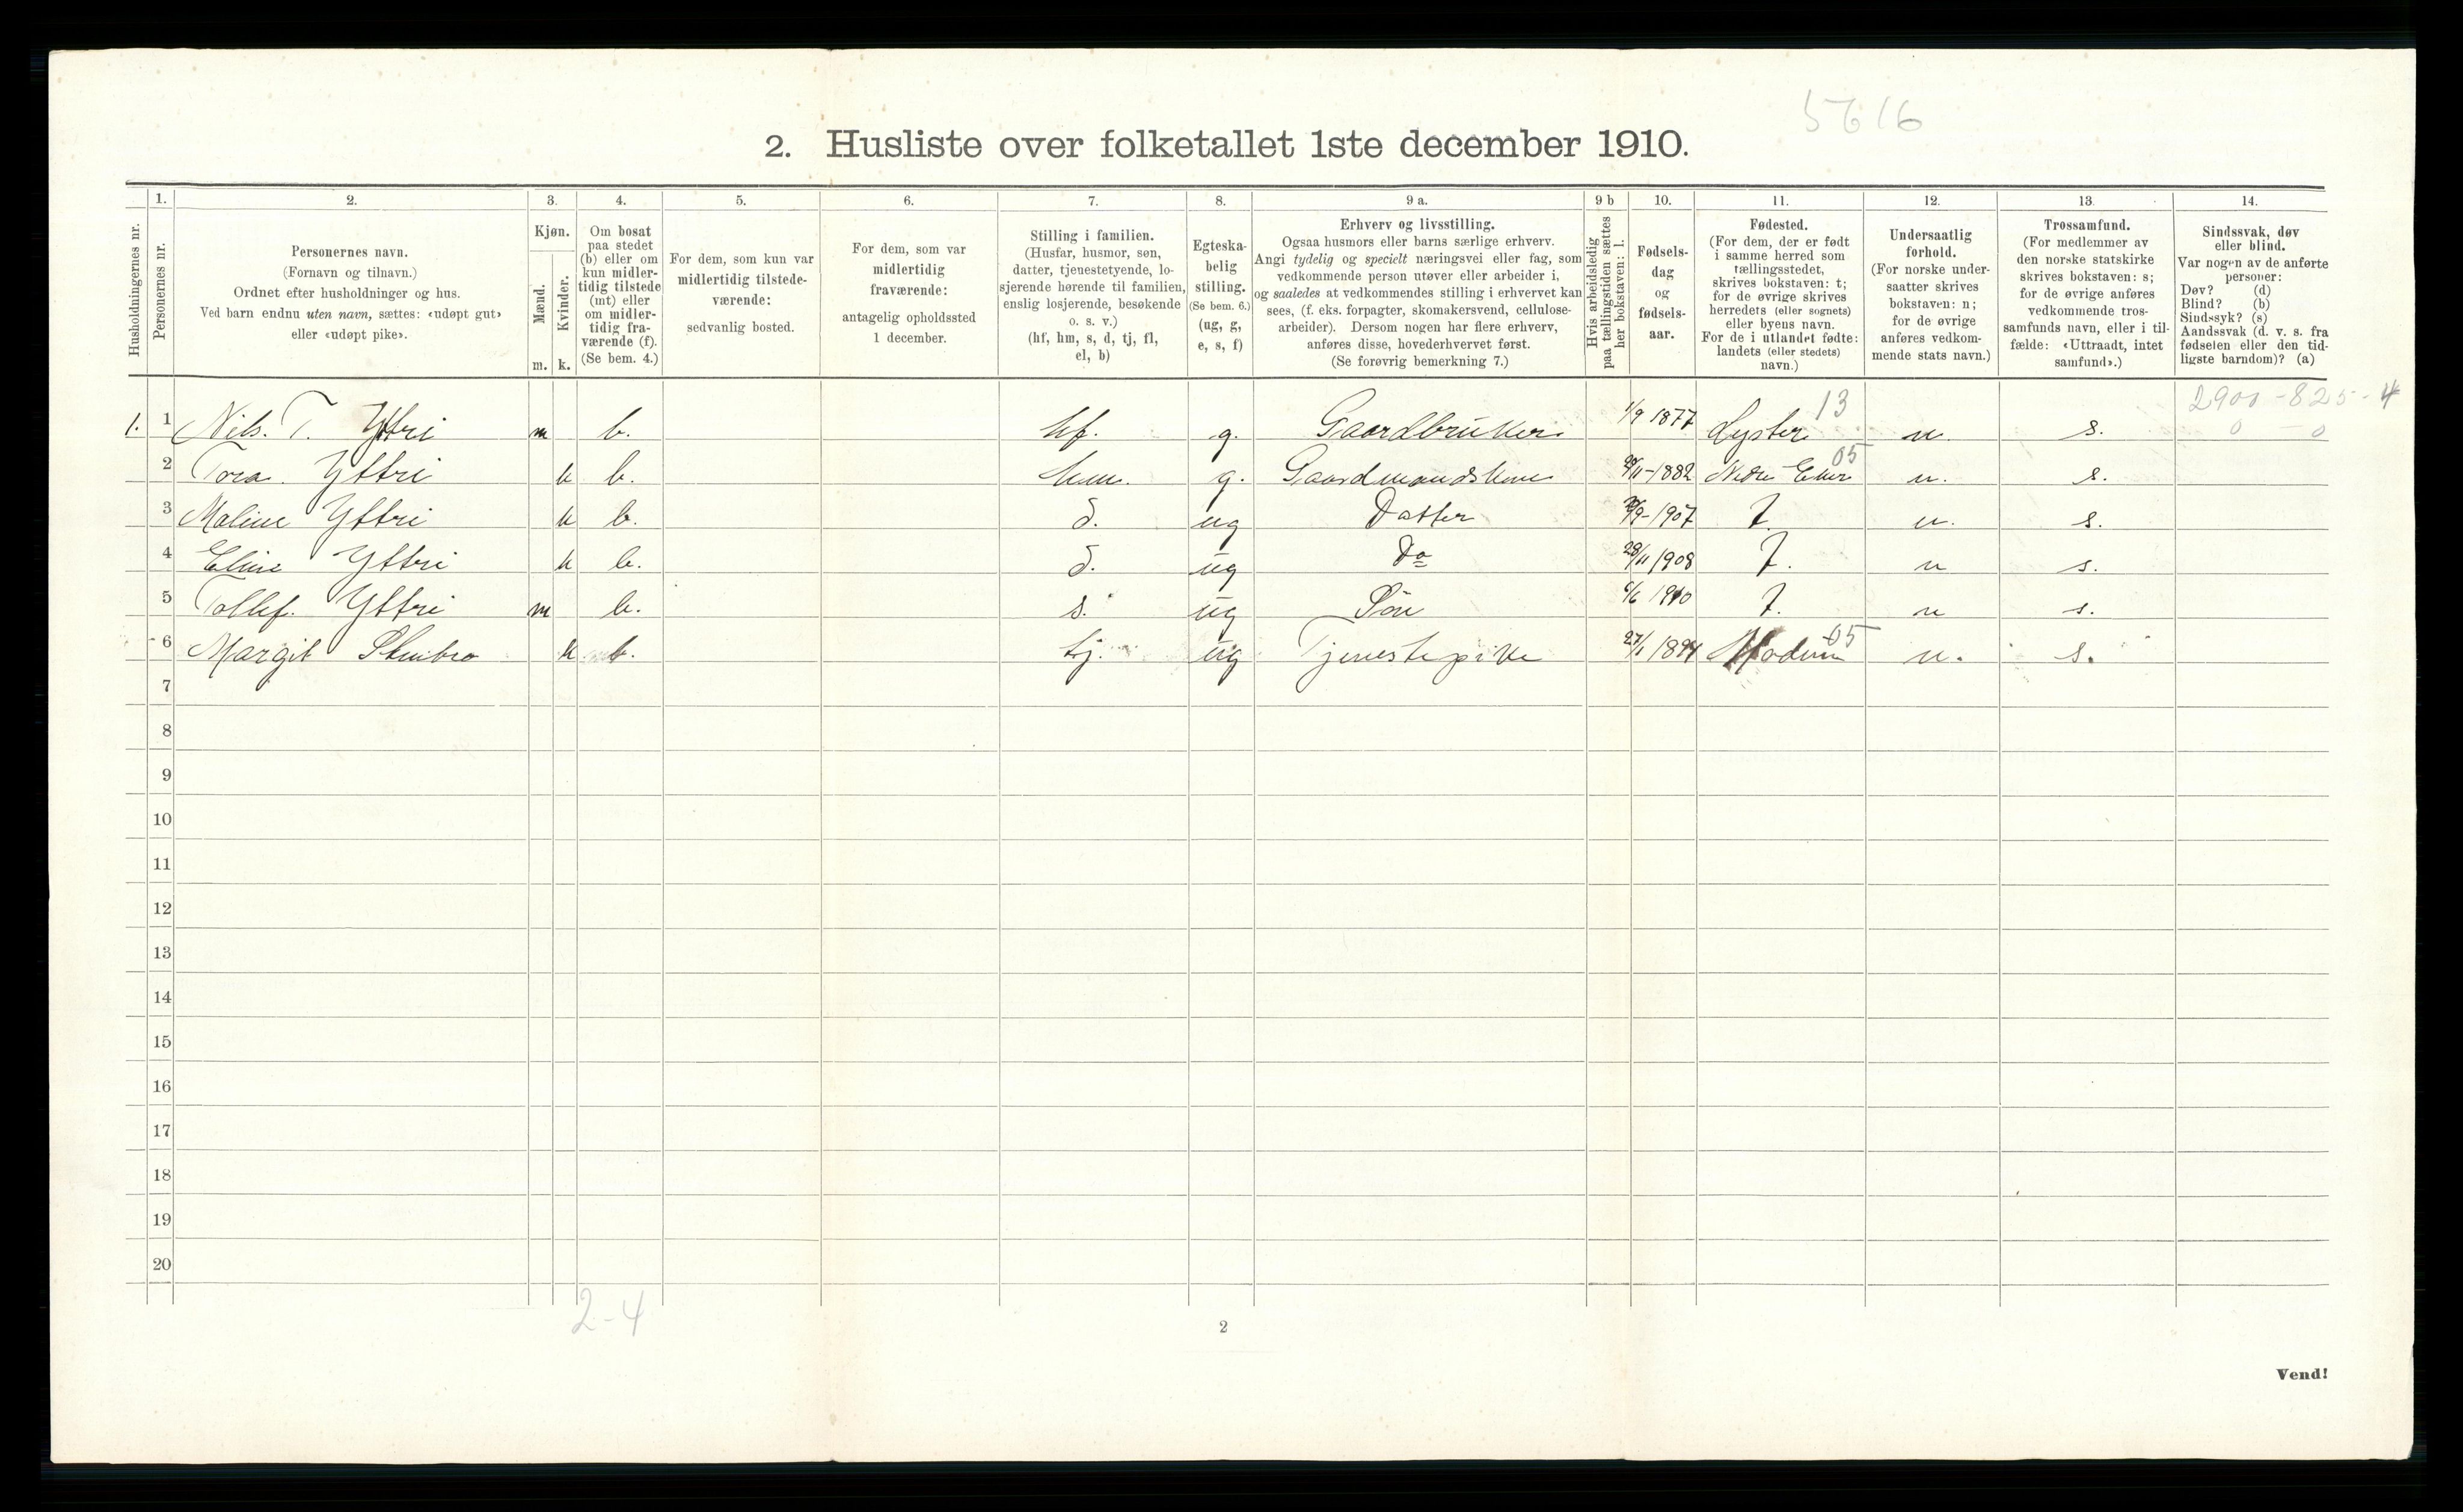 5616
2. Husliste over folketallet 1ste december 1910.
Husholdningernes nr.
1.
Personernes nr.
2.
Personernes navn.
(Fornavn og tilnavn.)
Ordnet efter husholdninger og hus.
Ved barn endnu uten navn, sættes: «udøpt gut»
eller «udøpt pike».
3.
Kjøn.
Mænd.
Kvinder.
m. k.
4.
Om bosat
paa stedet
(b) eller om
kun midler-
tidig tilstede
(mt) eller
om midler-
tidig fra-
værende (f).
(Se bem. 4.)
5.
For dem, som kun var
midlertidig tilstede-
værende:
sedvanlig bosted.
6.
For dem, som var
midlertidig
fraværende:
antagelig opholdssted
1 december.
7.
Stilling i familien.
(Husfar, husmor, søn,
datter, tjenestetyende, lo-
sjerende hørende til familien,
enslig losjerende, besøkende
o. s. v.)
(hf, hm, s, d, tj, fl,
el, b)
8.
Egteska-
belig
stilling.
(Se bem. 6.)
(ug, g,
e, s, f)
9 a.
Erhverv og livsstilling.
Ogsaa husmors eller barns særlige erhverv.
Angi tydelig og specielt næringsvei eller fag, som
vedkommende person utøver eller arbeider i,
og saaledes at vedkommendes stilling i erhvervet kan
sees, (f. eks. forpagter, skomakersvend, cellulose-
arbeider). Dersom nogen har flere erhverv,
anføres disse, hovederhvervet først.
(Se forøvrig bemerkning 7.)
9 b
Hvis arbeidsledig
paa tællingstiden sættes
her bokstaven: l.
10.
Fødsels-
dag
og
fødsels-
aar.
11.
Fødested.
(For dem, der er født
i samme herred som
tællingsstedet,
skrives bokstaven: t;
for de øvrige skrives
herredets (eller sognets)
eller byens navn.
For de i utlandet fødte:
landets (eller stedets)
navn.)
12.
Undersaatlig
forhold.
(For norske under-
saatter skrives
bokstaven: n;
for de øvrige
anføres vedkom-
mende stats navn.)
13.
Trossamfund.
(For medlemmer av
den norske statskirke
skrives bokstaven: s;
for de øvrige anføres
vedkommende tros-
samfunds navn, eller i til-
fælde: «Uttraadt, intet
samfund».)
14.
Sindssvak, døv
eller blind.
Var nogen av de anførte
personer:
Døv? (d)
Blind? (b)
Sindssyk? (s)
Aandssvak (d. v. s. fra
fødselen eller den tid-
ligste barndom)? (a)
2900 - 825 - 4
0 - 0
1. 1 Nils. T. Yttri m b. hf. g. Gaardbruker 1/9 1877 Lyster 13 n. s.
2 Tora. Yttri k b. hm. g. Gaardmandskone /11-1882 Nedre Eker 05 n. s.
3 Maline Yttri k b. d. ug Datter /9-1907 t. n. s.
4 Eline Yttri k b. d. ug Do 28/11 1908 t. n s.
5 Tollef. Yttri m b. s. ug Søn 6/6 1910 t. n s.
6 Margit k b. tj. ug Tjenestepike 27/1 1894 Modum 05 n. s.
7
8
9
10
11
12
13
14
15
16
17
18
19
20
2-4
2
Vend!